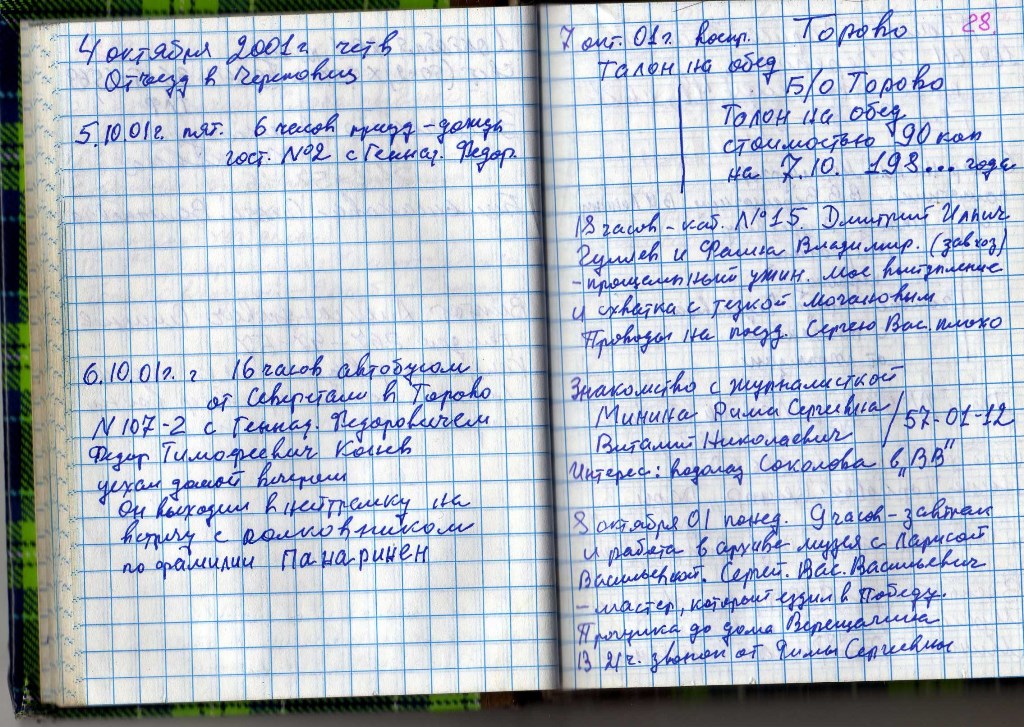 4 октября 2001 г. четв
Отъезд в Череповец
5.10.01г. пят. 6 часов приезд - дождь
гост. №2 с Геннад. Федор.
6.10.01г. г 16 часов автобусом
от Северстали в Торово
N 107-2 с Геннад. Федоровичем
Федор Тимофеевич
уехал домой вечером
Он выходил в нейтралку на
встречу с полковником
по фамилии Панаринен
88.
7 окт. 01г. воскр. Торово
Талон на обед
Б/О Торово
Талон на обед
стоимостью 90 коп
на 7.10. 198... года
18 часов - каб. №15. Дмитрий Ильич
и Владимир. (завхоз)
- прощальный ужин. Мое выступление
и схватка с тезкой
Проводы на поезд. Сергею Вас. плохо
Знакомство с журналисткой
Минина Рима Сергеевна / 57-01-12
Виталий Николаевич
Интерес: водолаз Соколова в „ВВ"
8 октября 01 понед. 9 часов - завтрак
и работа в архиве музея с Ларисой
Васильевной. Сергей. Вас. Васильевич
- мастер, который ездил в Победу.
Прогулка до дома Верещагина
В 21ч. звонок от Римы Сергеевны